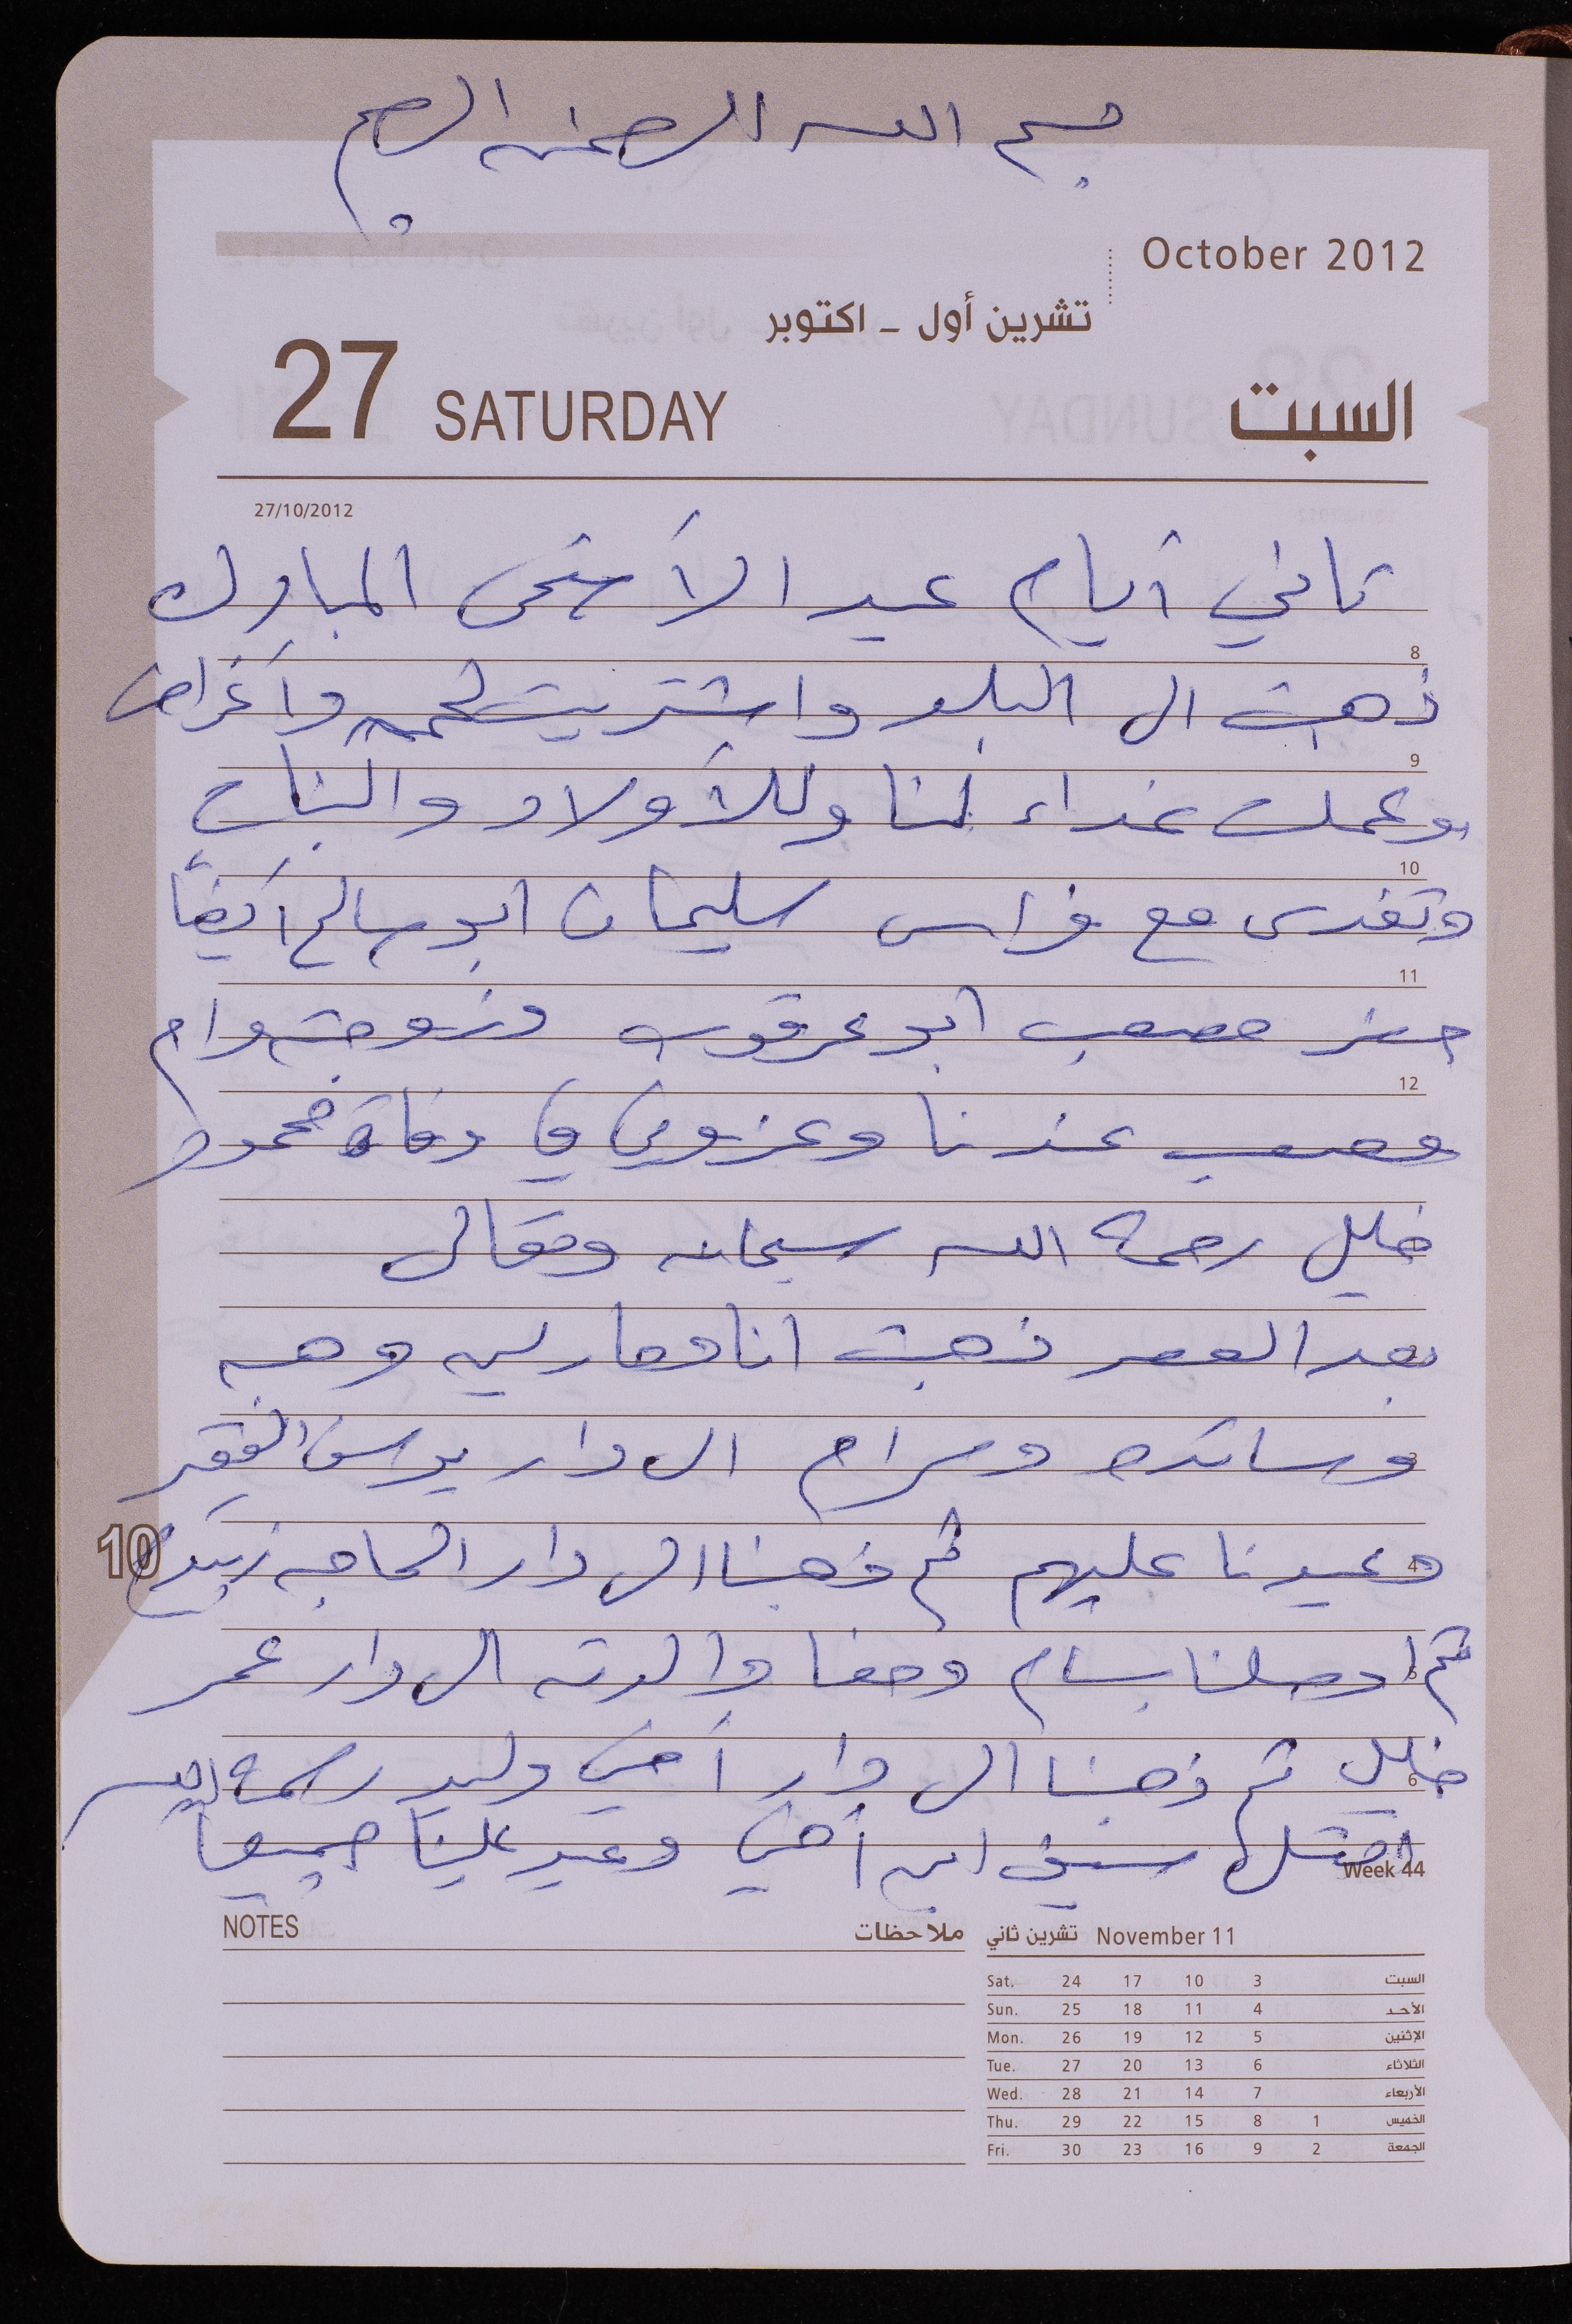 بسم الله الرحمن الرحيم
October 2012
تشرين أول - اكتوبر
27 SATURDAY السبت
27/10/2012
ثاني أيام عيد الأضحى المبارك
8
ذهبت الى البلد واشتريت لحمه وأغراض
9
وعملت غداء لنا وللأولاد والبنات
10
وتغدى مع فراس سليمان ابو سالم أيضاً
11
حضر مصعب ابو عرقوب وزوجته وام
12
مصعب عندنا وعزوني في وفاة محمود
خليل رحمة الله سبحانه وتعالى
بعد العصر ذهبت انا وهبه
وسائده ومرام الى دار يوسف الفقير
10
وعيدنا عليهم ثم ذهبنا الى دار الحاجه زبيده
4
ثم اوصلنا بسام ومعنا والدته الى دار عمر
5
خليل ثم ذهبنا الى دار أخي وليد رحمه الله
6
سيف ابن أخي وعيد علينا جميعا
Week 44
NOTES ملاحظات
تشرين ثاني November 11
Sat. 24 17 10 3 السبت
Sun. 25 18 11 4 الأحد
Mon. 26 19 12 5 الإثنين
Tue. 27 20 13 6 الثلاثاء
Wed. 28 21 14 7 الأربعاء
Thu. 29 22 15 8 1 الخميس
Fri. 30 23 16 9 2 الجمعة